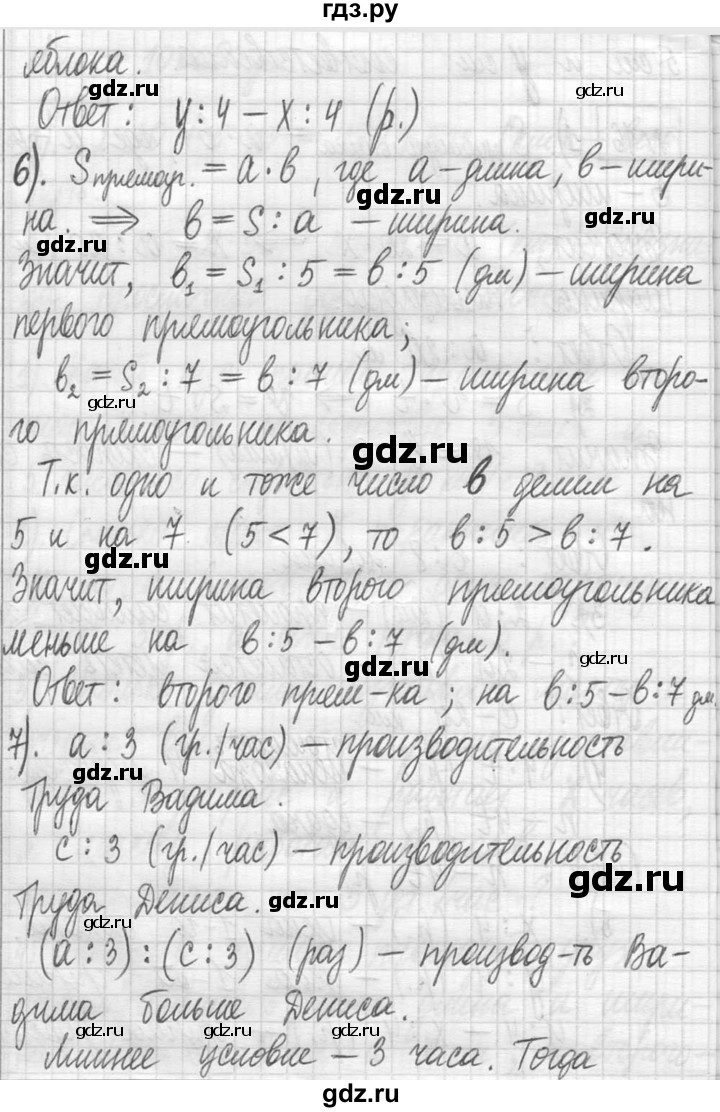 гдз.ру
яблока.
Ответ: у:4 – х:4 (р.)
6). Sпрямоуг. = а · в, где а – длина, в – шири-
на. ⟹ в = S : а – ширина.
Значит, в₁ = S₁ : 5 = в : 5 (дм) – ширина
первого прямоугольника;
в₂ = S₂ : 7 = в : 7 (дм) – ширина второ-
го прямоугольника.
Т.к. одно и тоже число в делим на
5 и на 7 (5 < 7), то в : 5 > в : 7.
Значит, ширина второго прямоугольника
меньше на в : 5 – в : 7 (дм).
Ответ: второго прям-ка; на в:5 – в:7 дм.
7). а : 3 (гр./час) – производительность
труда Вадима.
с : 3 (гр./час) – производительность
труда Дениса.
(а : 3) : (с : 3) (раз) – производ-ть Ва-
дима больше Дениса.
Лишнее условие – 3 часа. Тогда
gdz.ru